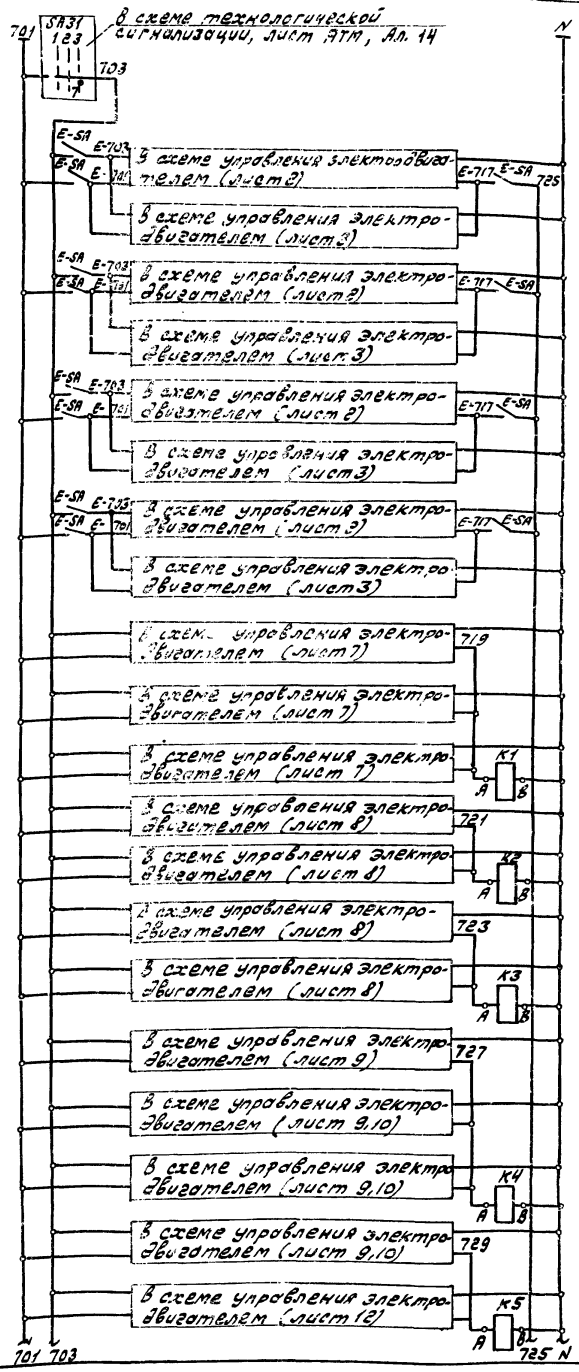 701
SA31
1 2 3
7
В схеме технологической
сигнализации, лист АТМ, Ал. 14
703
N
E-SA E-703
E-SA E-701
В схеме управления электродвига-
телем (лист 2)
E-717 E-SA
725
В схеме управления электро-
двигателем (лист 3)
E-SA E-703
E-SA E-701
В схеме управления электро-
двигателем (лист 2)
E-717 E-SA
В схеме управления электро-
двигателем (лист 3)
E-SA E-703
E-SA E-701
В схеме управления электро-
двигателем (лист 2)
E-717 E-SA
В схеме управления электро-
двигателем (лист 3)
E-SA E-703
E-SA E-701
В схеме управления электро-
двигателем (лист 3)
E-717 E-SA
В схеме управления электро
двигателем (лист 3)
В схеме управления электро-
двигателем (лист 7)
719
В схеме управления электро-
двигателем (лист 7)
В схеме управления электро-
двигателем (лист 7)
K1
A B
В схеме управления электро-
двигателем (лист 8)
721
В схеме управления электро-
двигателем (лист 8)
K2
A B
В схеме управления электро-
двигателем (лист 8)
723
В схеме управления электро-
двигателем (лист 8)
K3
A B
В схеме управления электро-
двигателем (лист 9)
727
В схеме управления электро-
двигателем (лист 9,10)
В схеме управления электро
двигателем (лист 9,10)
K4
A B
В схеме управления электро-
двигателем (лист 9,10)
729
В схеме управления электро-
двигателем (лист 12)
K5
A B
701 703
725 N